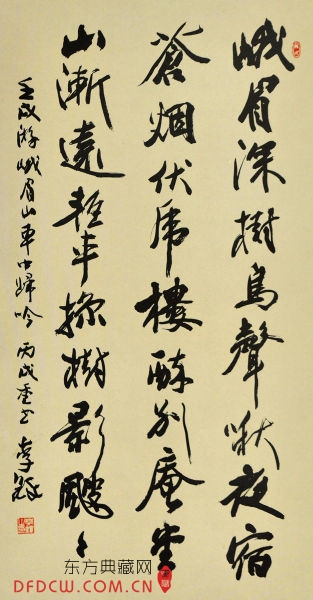 峨眉深樹鳥聲啾夜宿
蒼烟伏虎樓醉別庵堂
山漸遠輕車掠樹影颼〻
壬戌游峨眉山車中歸吟 丙戌重書 李鐸
东方典藏网
DFDCW.COM.CN